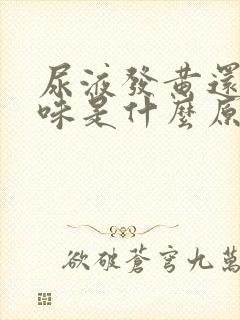 尿液發黃還
味是什麼原
欲破蒼穹九萬